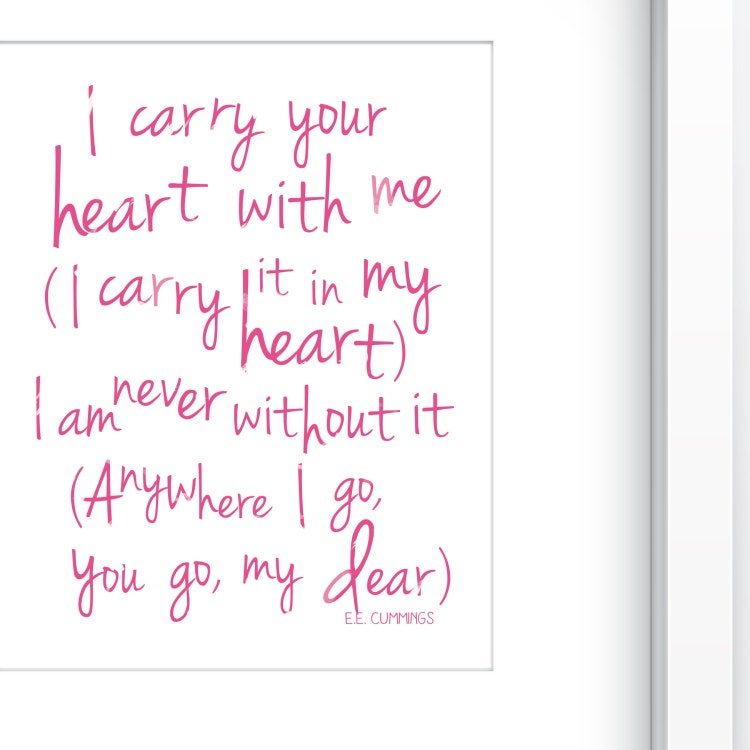 I carry your
heart with me
(I carry it in my
heart)
I am never without it
(Anywhere I go,
you go, my dear)
E.E. CUMMINGS